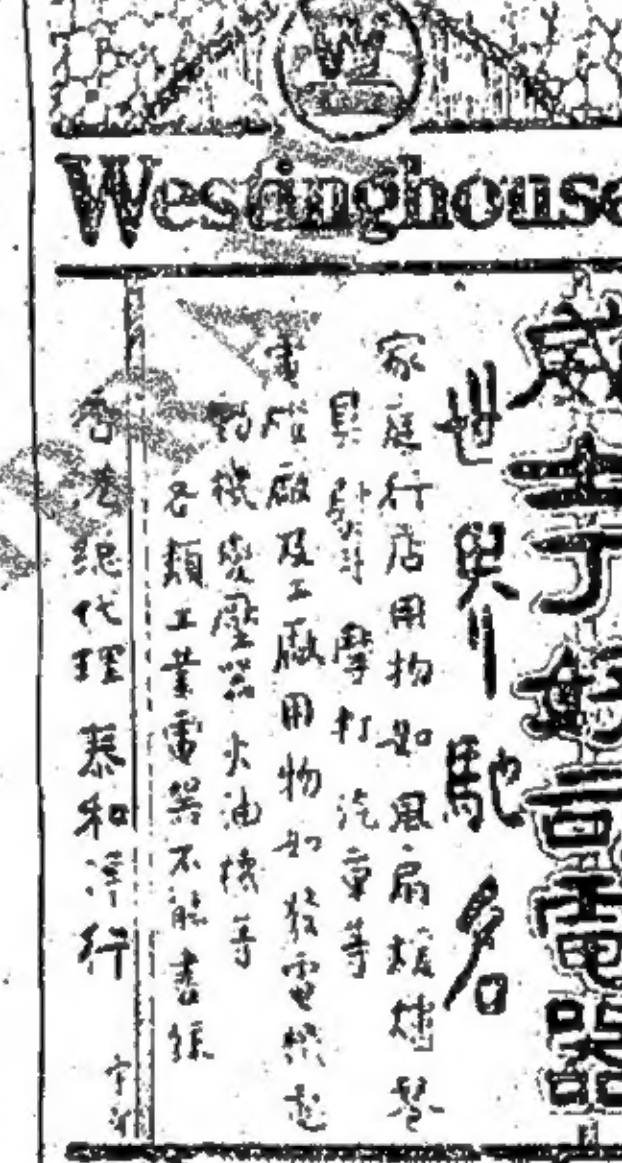 W
Westinghouse
威士丁好司電器
世界馳名
家庭行店用物如風扇煖爐琴
具 摩打汽車等
電燈廠及工廠用物如發電機起
動機變壓器火油機等
各類工業電器不能盡錄
香港總代理 泰和洋行